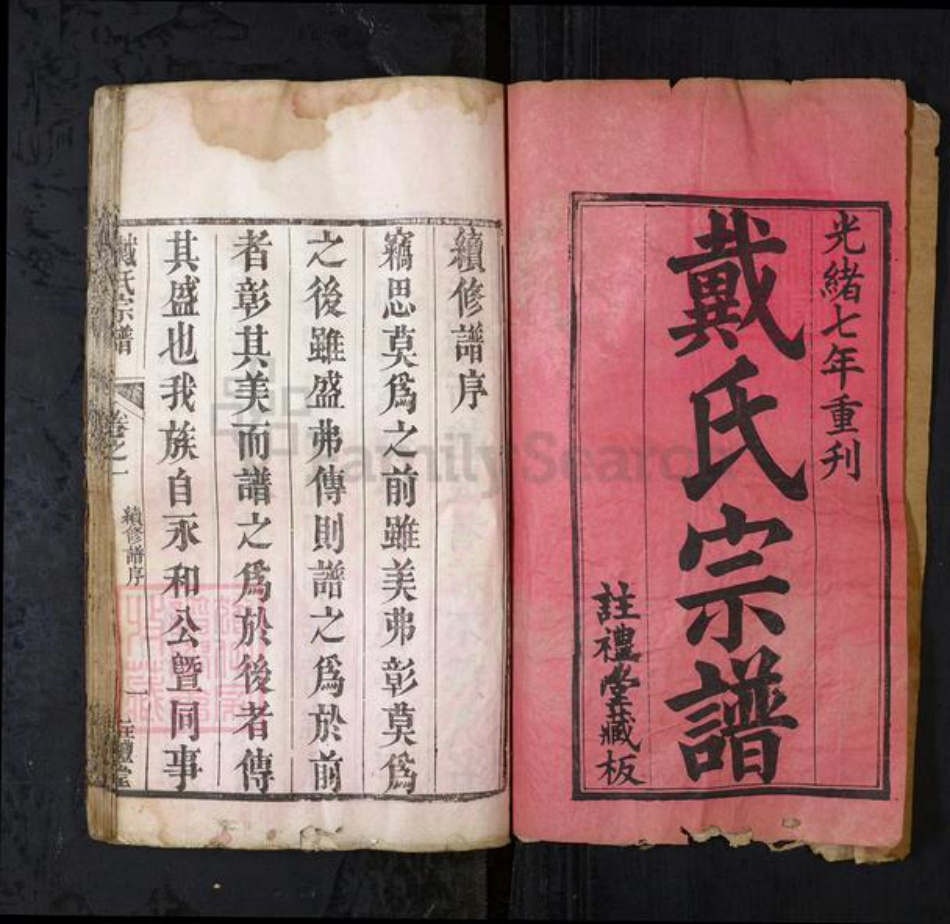 光緒七年重刊
戴氏宗譜
註禮堂藏板
續修譜序
竊思莫爲之前雖美弗彰莫爲
之後雖盛弗傳則譜之爲於前
者彰其美而譜之爲於後者傳
其盛也我族自永和公暨同事
戴氏宗譜
卷之一
續修譜序
一
註禮堂
FamilySearch